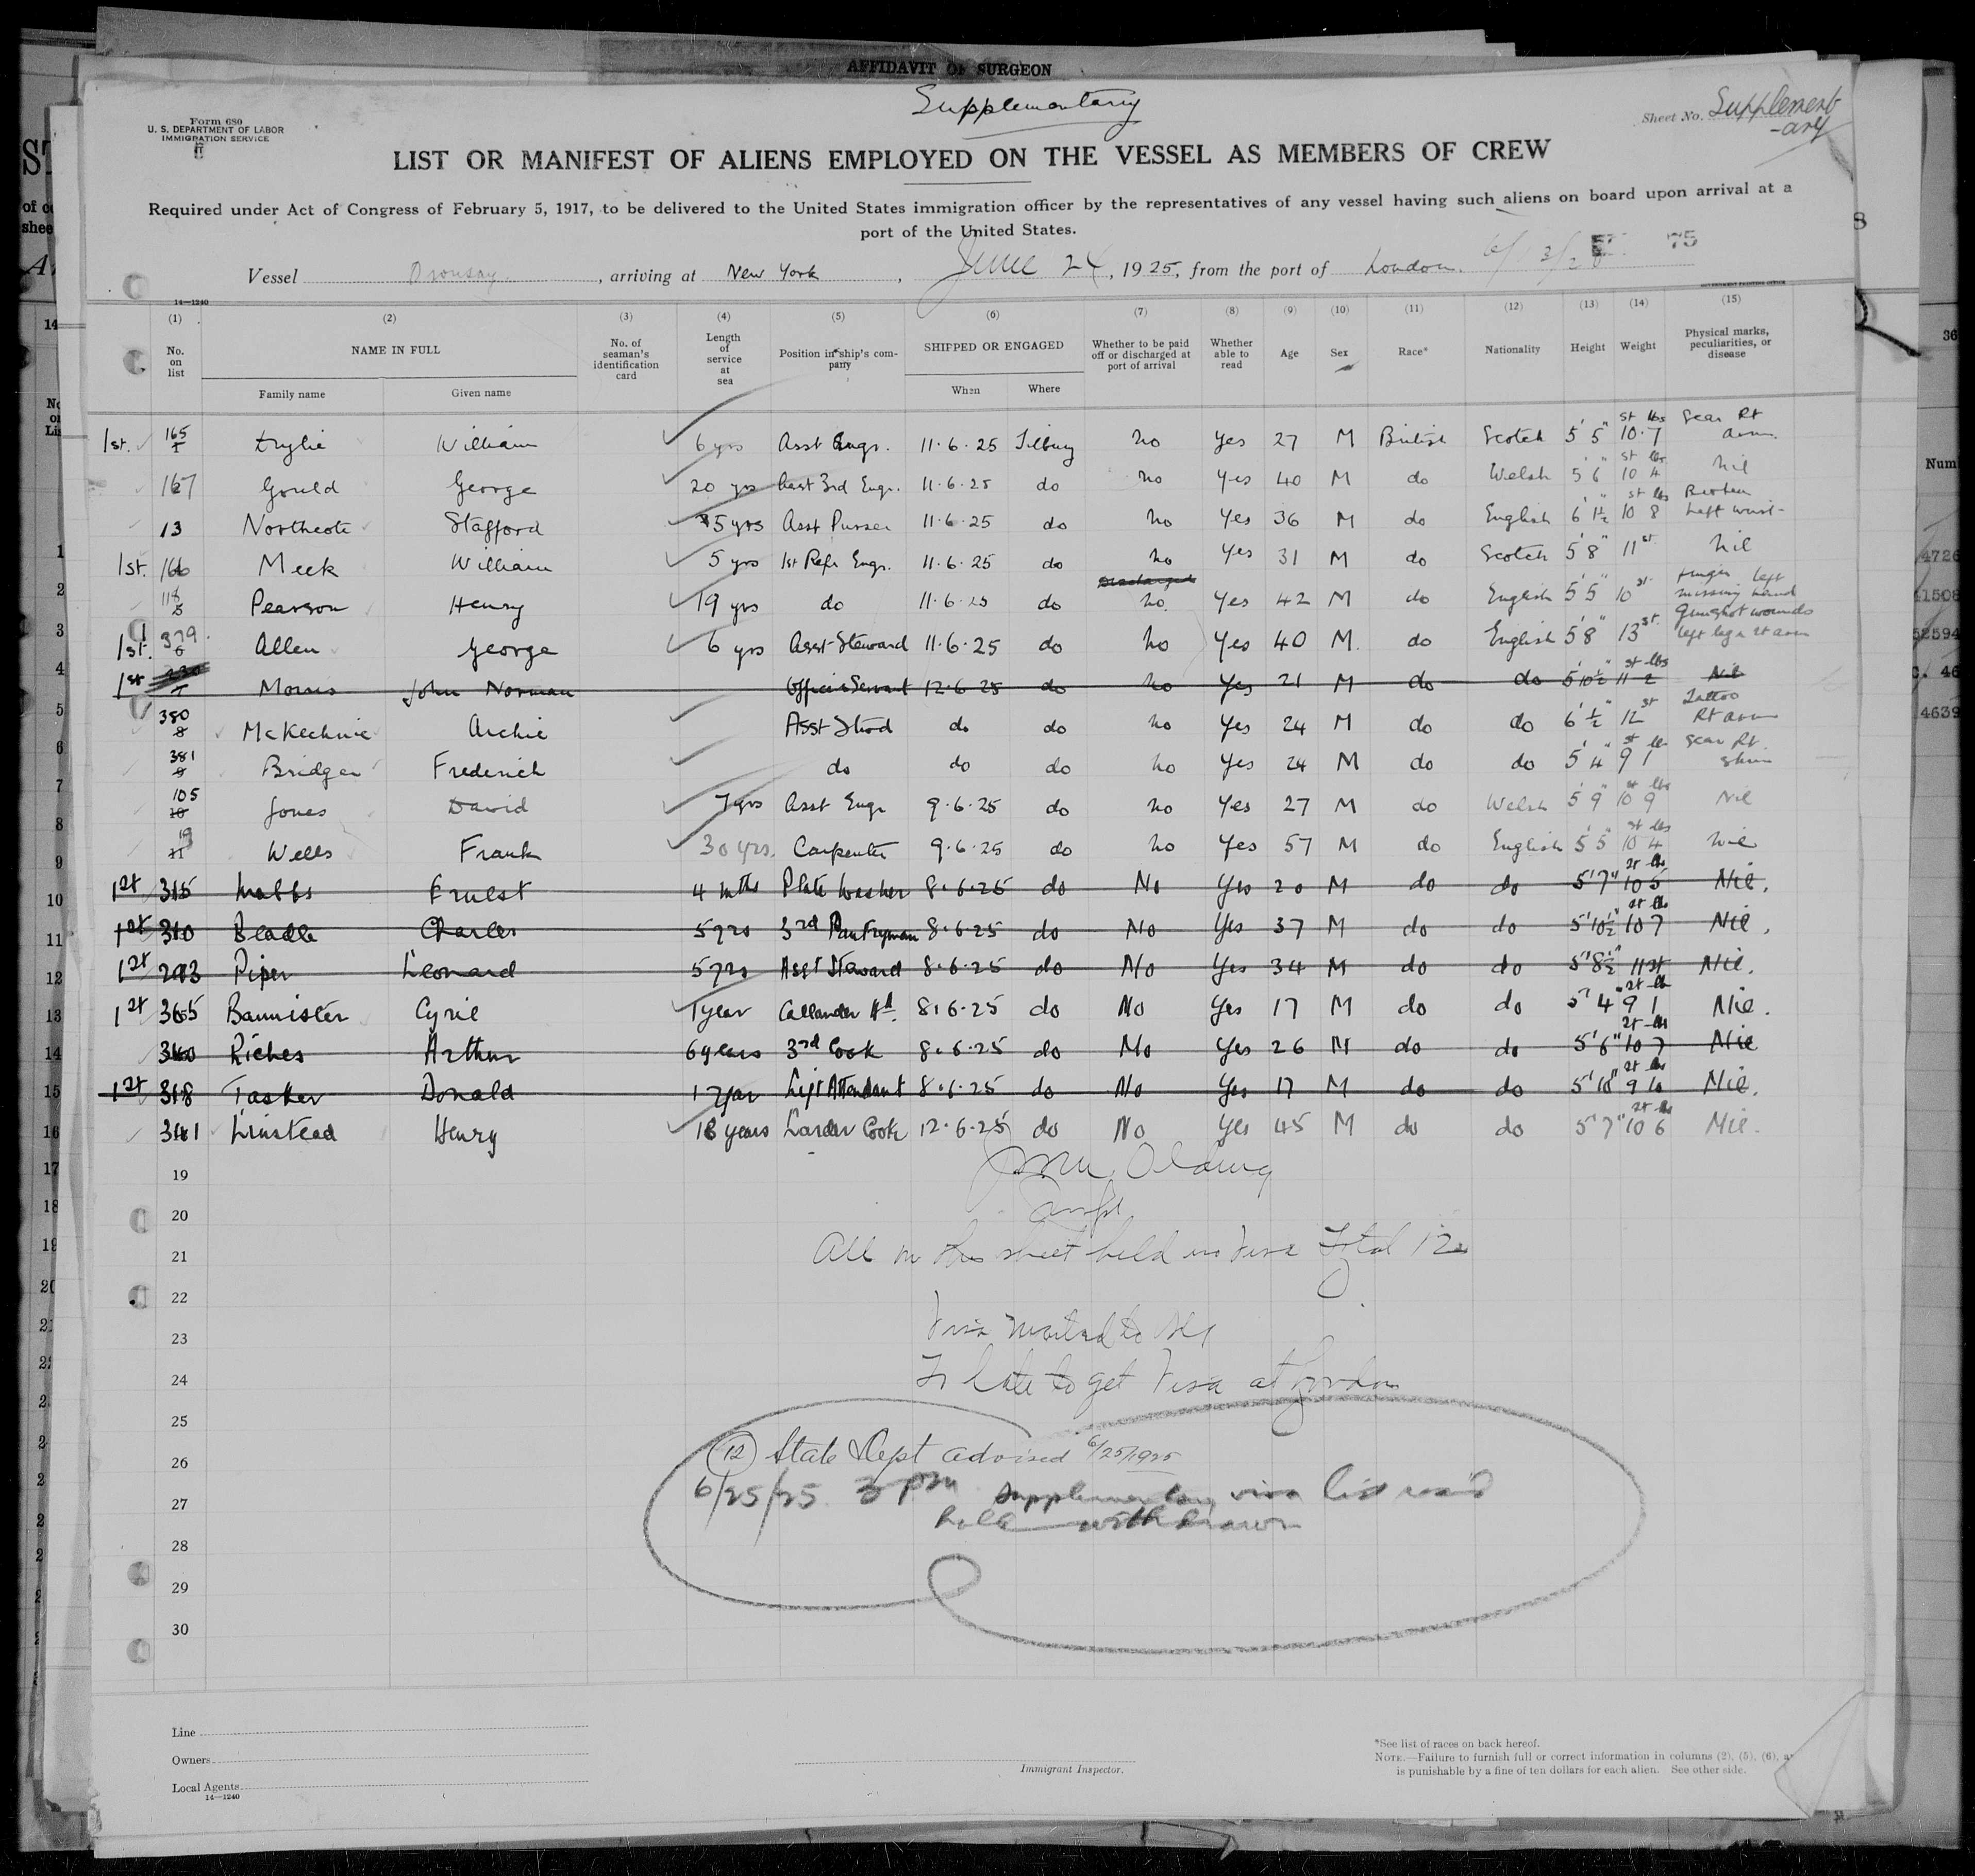 AFFIDAVIT OF SURGEON
Supplementary
Form 680
U. S. DEPARTMENT OF LABOR
IMMIGRATION SERVICE
Sheet No. Supplement
-ary
LIST OR MANIFEST OF ALIENS EMPLOYED ON THE VESSEL AS MEMBERS OF CREW
Required under Act of Congress of February 5, 1917, to be delivered to the United States immigration officer by the representatives of any vessel having such aliens on board upon arrival at a
port of the United States.
75
Vessel Oronsay, arriving at New York, June 24, 1925, from the port of London.
14—1240
(1) (2) (3) (4) (5) (6) (7) (8) (9) (10) (11) (12) (13) (14) (15)
No. on list NAME IN FULL Family name Given name No. of seaman's identification card Length of service at sea Position in ship's company SHIPPED OR ENGAGED When Where Whether to be paid off or discharged at port of arrival Whether able to read Age Sex Race* Nationality Height Weight Physical marks, peculiarities, or disease
1st. 165 Drylie William 6 yrs Asst Engr. 11.6.25 Tilbury no Yes 27 M British Scotch 5'5" 10.7 st lbs Scar Rt arm.
167 Gould George 20 yrs Asst 3rd Engr. 11.6.25 do no Yes 40 M do Welsh 5'6" 10 4 st lbs Nil
13 Northcote Stafford 5 yrs Asst Purser 11.6.25 do no Yes 36 M do English 6'1½" 10 8 st lbs Broken Left wrist
1st. 166 Meek William 5 yrs 1st Refr Engr. 11.6.25 do no Yes 31 M do Scotch 5'8" 11 st. Nil
118 Pearson Henry 19 yrs do 11.6.25 do Discharged no. Yes 42 M do English 5'5" 10 st. finger left missing hand
1st. 379 Allen George 6 yrs Asst Steward 11.6.25 do no Yes 40 M. do English 5'8" 13 st. Gunshot wounds left leg & rt arm
1st 7 Morris John Norman Officers Servant 12.6.25 do no Yes 21 M do do 5'10½" 11 2 st lbs Nil
380 8 McKechnie Archie Asst Stwd do do no Yes 24 M do do 6'½" 12 st Tattoo Rt arm
381 9 Bridger Frederick do do do no Yes 24 M do do 5'4" 9 1 st lbs Scar Rt. shin
105 10 Jones David 7 yrs Asst Engr 9.6.25 do no Yes 27 M do Welsh 5'9" 10 9 st lbs Nil
19 11 Wells Frank 30 yrs. Carpenter 9.6.25 do no Yes 57 M do English 5'5" 10 4 st lbs Nil
1st 315 Mabbs Ernest 4 mths Plate Washer 8.6.25 do No Yes 20 M do do 5'7" 10 5 st lbs Nil.
1st 310 Beadle Charles 5 yrs 3rd Pantryman 8.6.25 do No Yes 37 M do do 5'10½" 10 7 st lbs Nil.
1st 293 Piper Leonard 5 yrs Asst Steward 8.6.25 do No Yes 34 M do do 5'8½" 11 st Nil.
1st 365 Bannister Cyril 1 year 8.6.25 do No Yes 17 M do do 5'4" 9 1 st lb Nil.
340 Riches Arthur 6 years 3rd Cook 8.6.25 do No Yes 26 M do do 5'6" 10 7 st lbs Nil
1st 318 Tasker Donald 1 year Lift Attendant 8.6.25 do No Yes 17 M do do 5'10" 9 10 st lbs Nil.
341 Linstead Henry 18 years Larder Cook 12.6.25 do No Yes 45 M do do 5'7" 10 6 st lbs Nil.
19
20
21 All on this sheet held no visa Total 12
22
23
24 To late to get Visa at London
25
26 (12) State Dept advised 6/25/1925
27 6/25/25 3 pm Supplementary visa list rec'd
Hold withdrawn
28
29
30
Line
Owners
Local Agents
14—1240
Immigrant Inspector.
*See list of races on back hereof.
NOTE.—Failure to furnish full or correct information in columns (2), (5), (6),
is punishable by a fine of ten dollars for each alien. See other side.